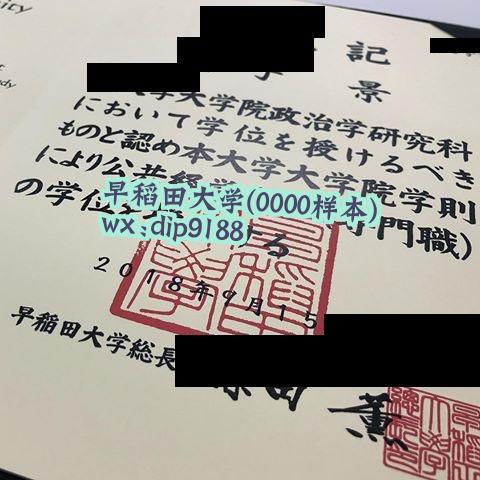 ity
記
景
大学大学院政治学研究科
において学位を授けるべき
ものと認め本大学大学院学則
により公共経
門職)
の学位
る
早稲田大学(0000样本)
wx:dip9188
2018年9月15
早稲田大学総長
田 薫